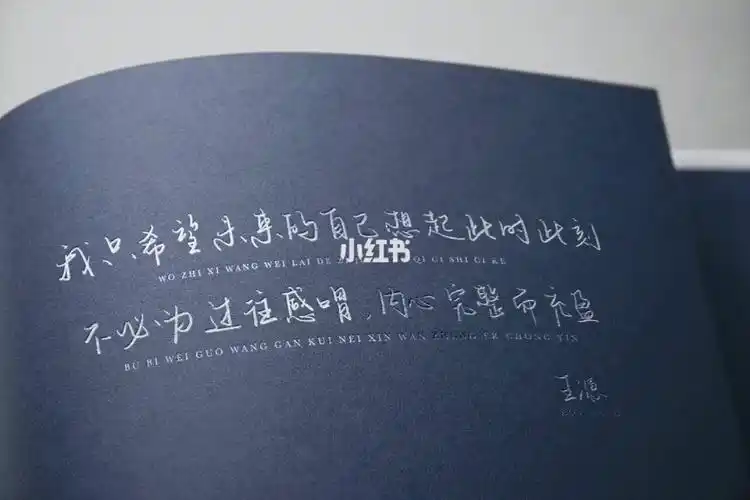 我只希望未来的自己想起此时此刻
小红书
WO ZHI XI WANG WEI LAI DE QI CI SHI CI KE
不必为过往感喟，内心完整而充盈
BU BI WEI GUO WANG GAN KUI NEI XIN WAN ZHENG ER CHONG YIN
王源